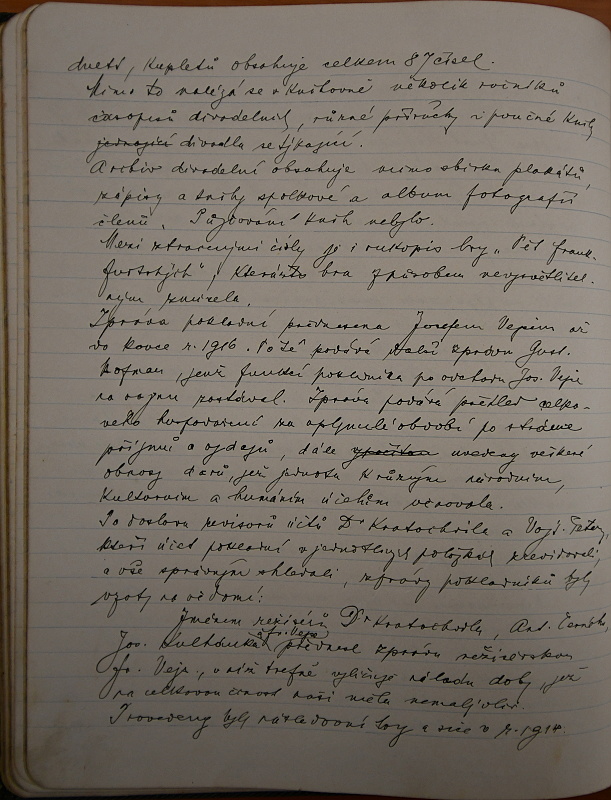 duetů, kupletů obsahuje celkem 87 čísel.
Mimo to nalézá se v knihovně několik ročníků
časopisů divadelních, různé příručky i poučné knihy
jednající divadla se týkající.
Archiv divadelní obsahuje mimo sbírku plakátů,
zápisy a knihy spolkové a album fotografií
členů. Půjčování knih nebylo.
Mezi ztracenými čísly je i rukopis hry „Pět frank-
furtských“, kterážto hra způsobem nevysvětlitel-
ným zmizela.
Zpráva pokladní přednesena Josefem Vejem až
do konce r. 1916. Poté podává další zprávu Gust.
Hofman, jenž funkci pokladníka po odchodu Jos. Veje
na vojnu zastával. Zpráva podává přehled celko-
vého hospodaření za uplynulé období po stránce
příjmů a vydajů, dále uvedeny veškeré
obnosy darů, jež jednota k různým národním,
kulturním a humáním účelům věnovala.
Po doslovu revisorů účtů Dr Kratochvíla a Vojt.
kteří účet pokladní v jednotlivých položkách prevідovali
a vše správným shledali, zprávy pokladníků byly
vzaty na vědomí:
Jménem režisérů Dr Kratochvíla, Ant.
Jos. Sultánka a Jos. Veje přednesl zprávu režisérskou
Jos. Veja, v níž trefně vyličuje náladu doby, jež
na celkovou činnost naši měla nemalý vliv.
Provedeny byly následovní hry a sice v r. 1914.